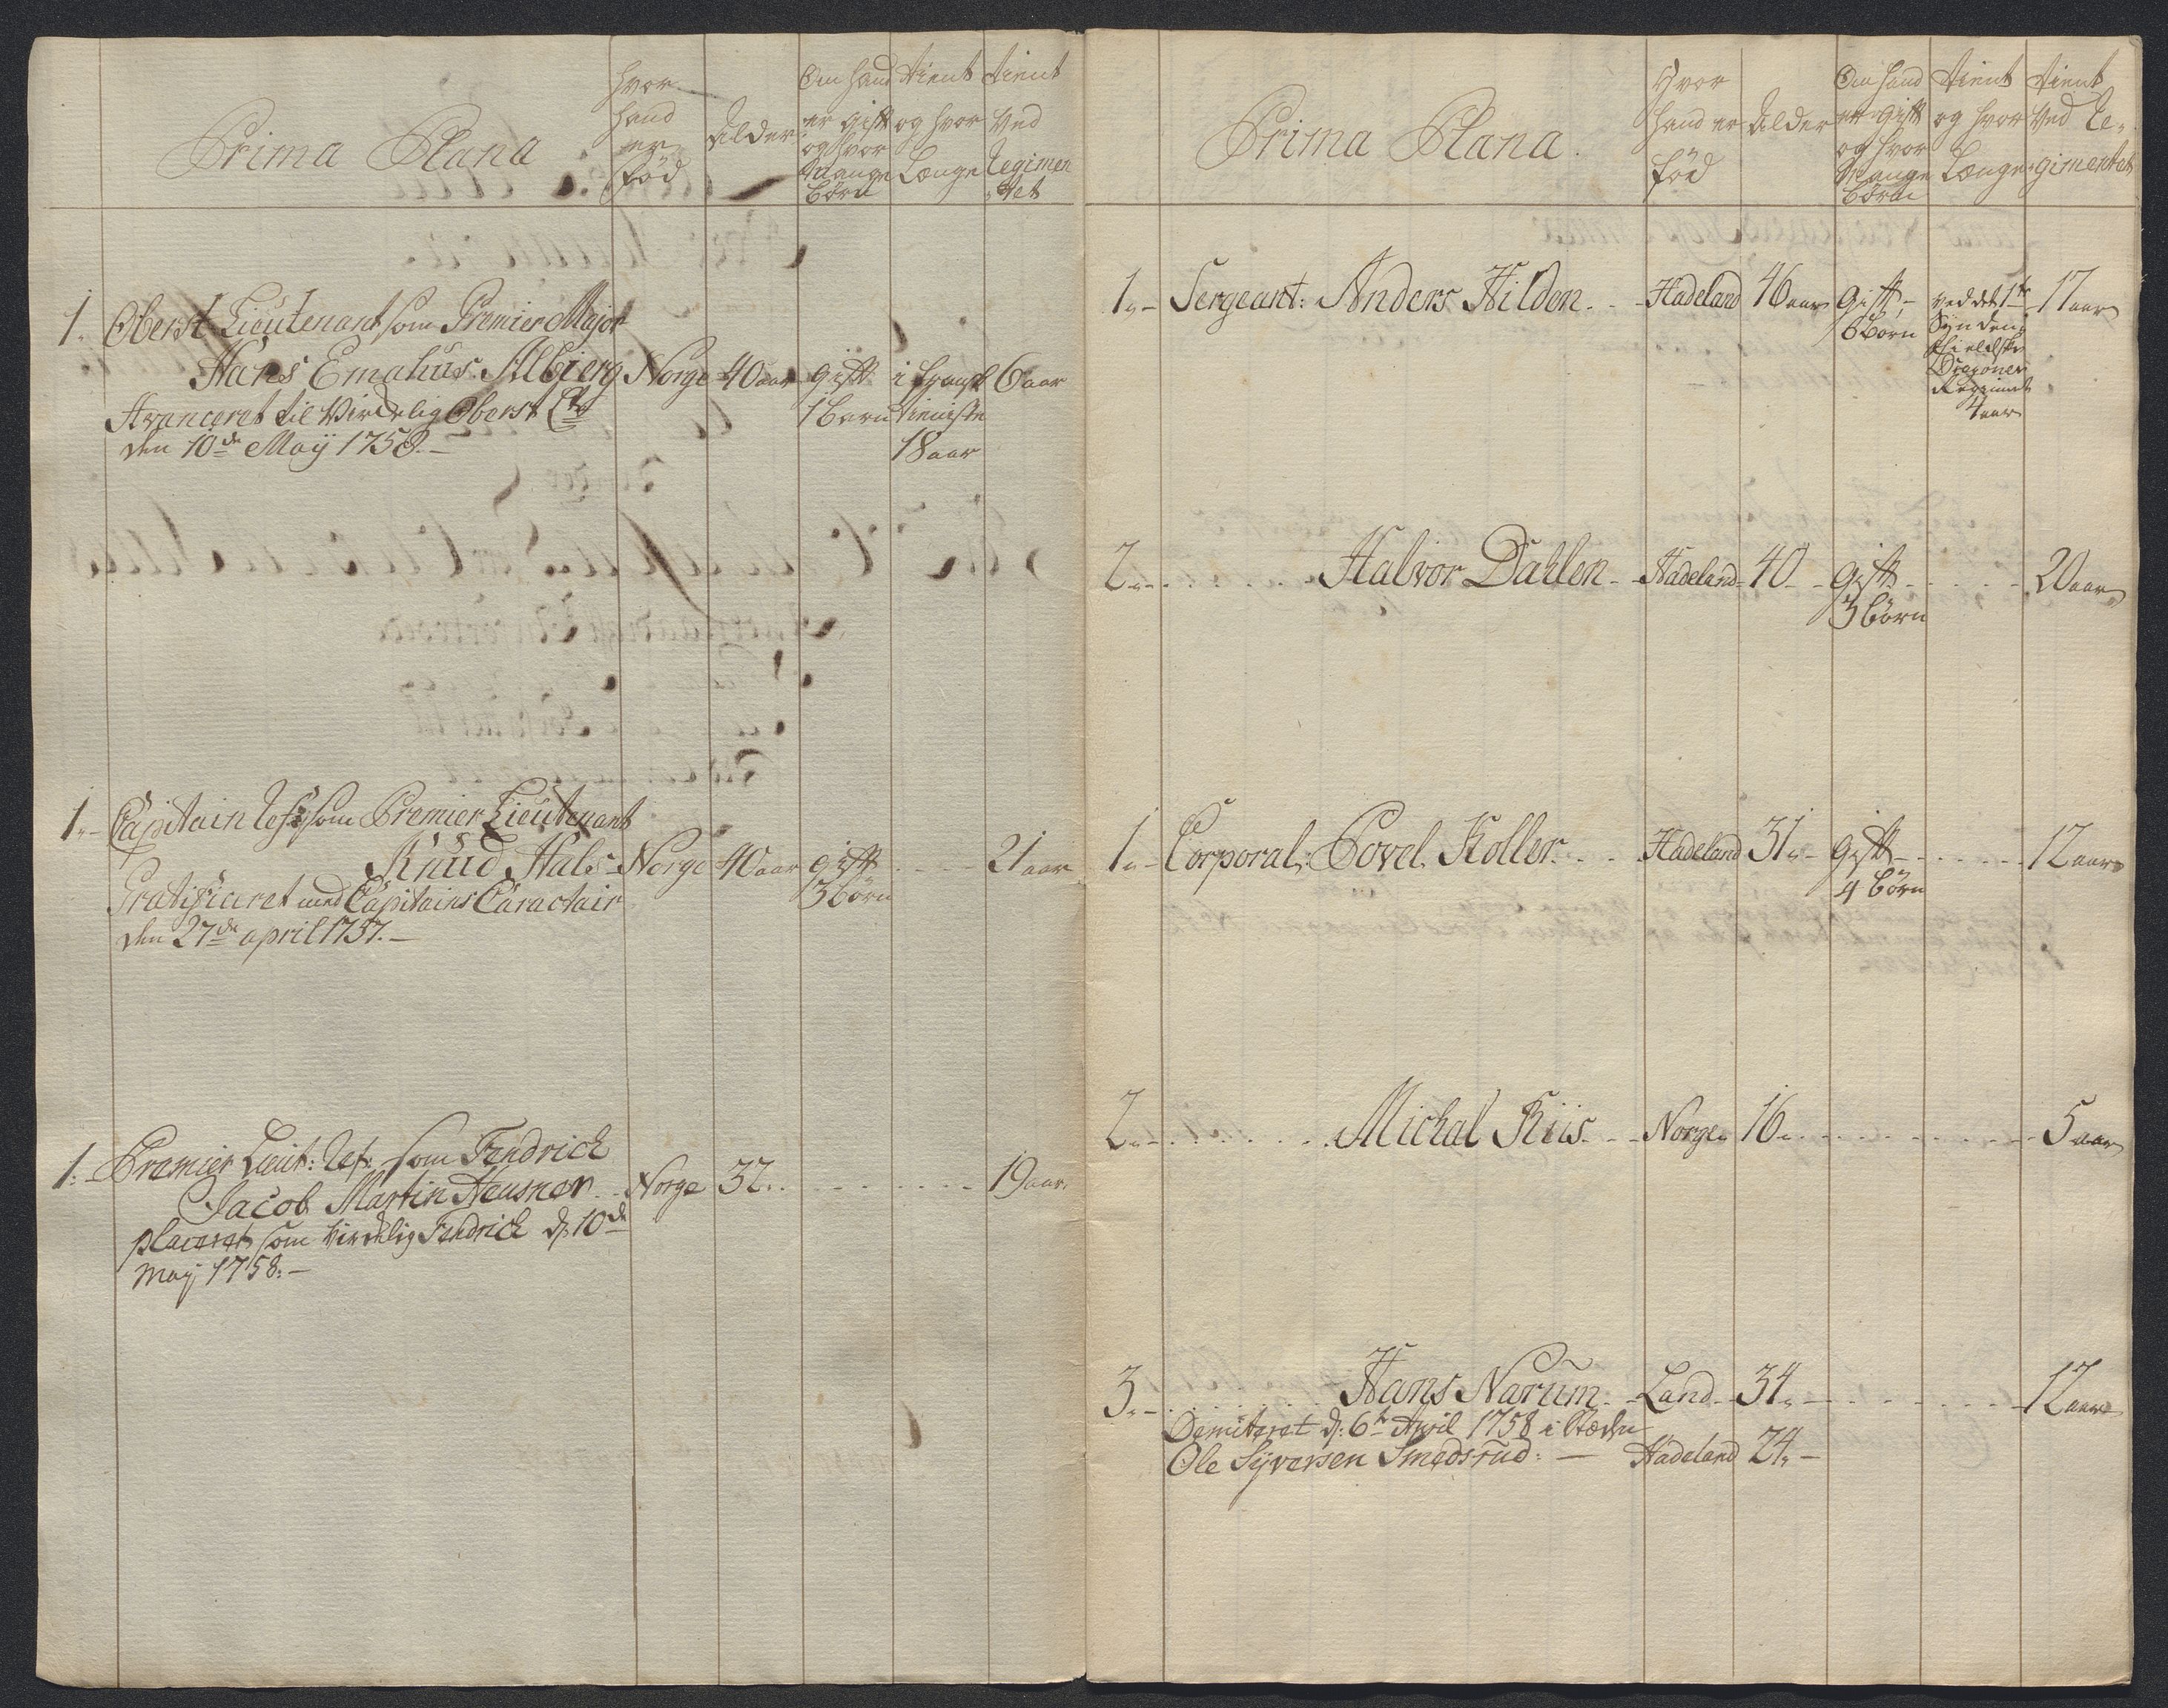 Prima Plana
Hvor hand er fød
Alder
Om hand er gift og hvor Mange børn
tient og hvor Længe
tient Ved Regimentet
1. Oberst Lieutenant som Premier Major
Hans Emahus Albierg Norge 40 aar gift 1 barn i tieniste 18 aar 6 aar
Avanceret til Virckelig Oberst Lt
den 10de Maÿ 1758.
1. Capitain Ref: som Premier Lieutenant
Knud Hals Norge 40 aar gift 3 børn 21 aar
Gratificeret med Capitains Caractair
den 27de april 1757.
1. Premier Lieut: Ref: som Fendrich
Jacob Martin Neusner Norge 32. 19 aar
placeret som virckelig Fendrich d: 10de
Maÿ 1758.
Prima Plana.
Hvor hand er fød
Alder
Om hand er gift og hvor Mange børn
tient og hvor Længe
tient Ved Regimentet
1. Sergeant: Anders Hilden. Hadeland 46 aar gift 6 børn ved det 1te Synden fieldske Dragoner Regiment 4 aar 17 aar
2. Halvor Dahlen Hadeland 40 gift 3 børn 20 aar
1. Corporal: Povel Koller. Hadeland 31. gift 4 børn 12 aar
2. Michal Kiis Norge 16. 5 aar
3. Hans Narum Land 34. 12 aar
Demiteret d: 6te April 1758 i Stæden
Ole Syversen Smedsrud: Hadeland 24.